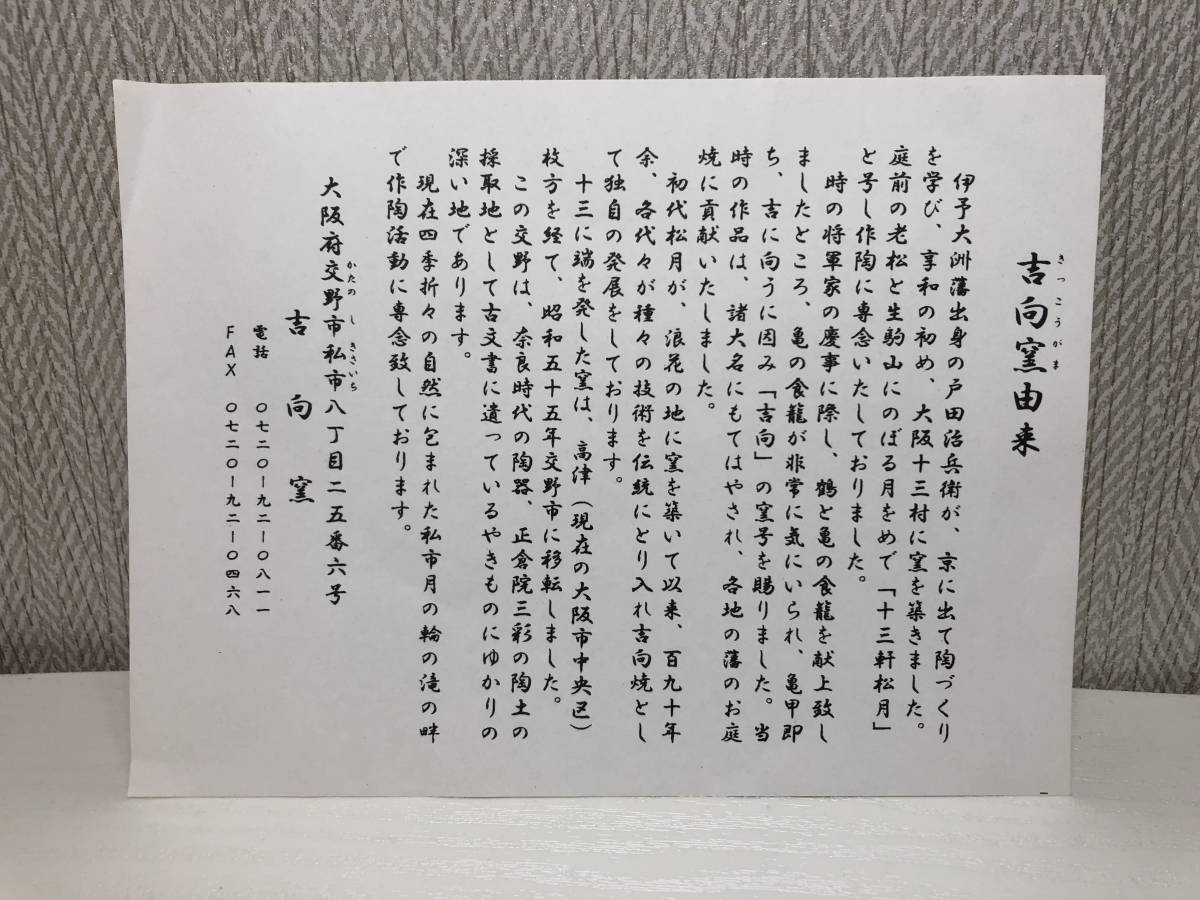 吉向窯由来
きっこうがま
伊予大洲藩出身の戸田治兵衛が、京に出て陶づくり
を学び、享和の初め、大阪十三村に窯を築きました。
庭前の老松と生駒山にのぼる月をめで「十三軒松月」
と号し作陶に専念いたしておりました。
時の将軍家の慶事に際し、鶴と亀の食籠を献上致し
ましたところ、亀の食籠が非常に気にいられ、亀甲即
ち、吉に向うに因み「吉向」の窯号を賜りました。当
時の作品は、諸大名にもてはやされ、各地の藩のお庭
焼に貢献いたしました。
初代松月が、浪花の地に窯を築いて以来、百九十年
余、各代々が種々の技術を伝統にとり入れ吉向焼とし
て独自の発展をしております。
十三に端を発した窯は、高津（現在の大阪市中央区）
枚方を経て、昭和五十五年交野市に移転しました。
この交野は、奈良時代の陶器、正倉院三彩の陶土の
採取地として古文書に遺っているやきものにゆかりの
深い地であります。
現在四季折々の自然に包まれた私市月の輪の滝の畔
で作陶活動に専念致しております。
大阪府交野市私市八丁目二五番六号
かたのし きさいち
吉向窯
電話 〇七二〇ー九二ー〇八一一
FAX 〇七二〇ー九二ー〇四六八